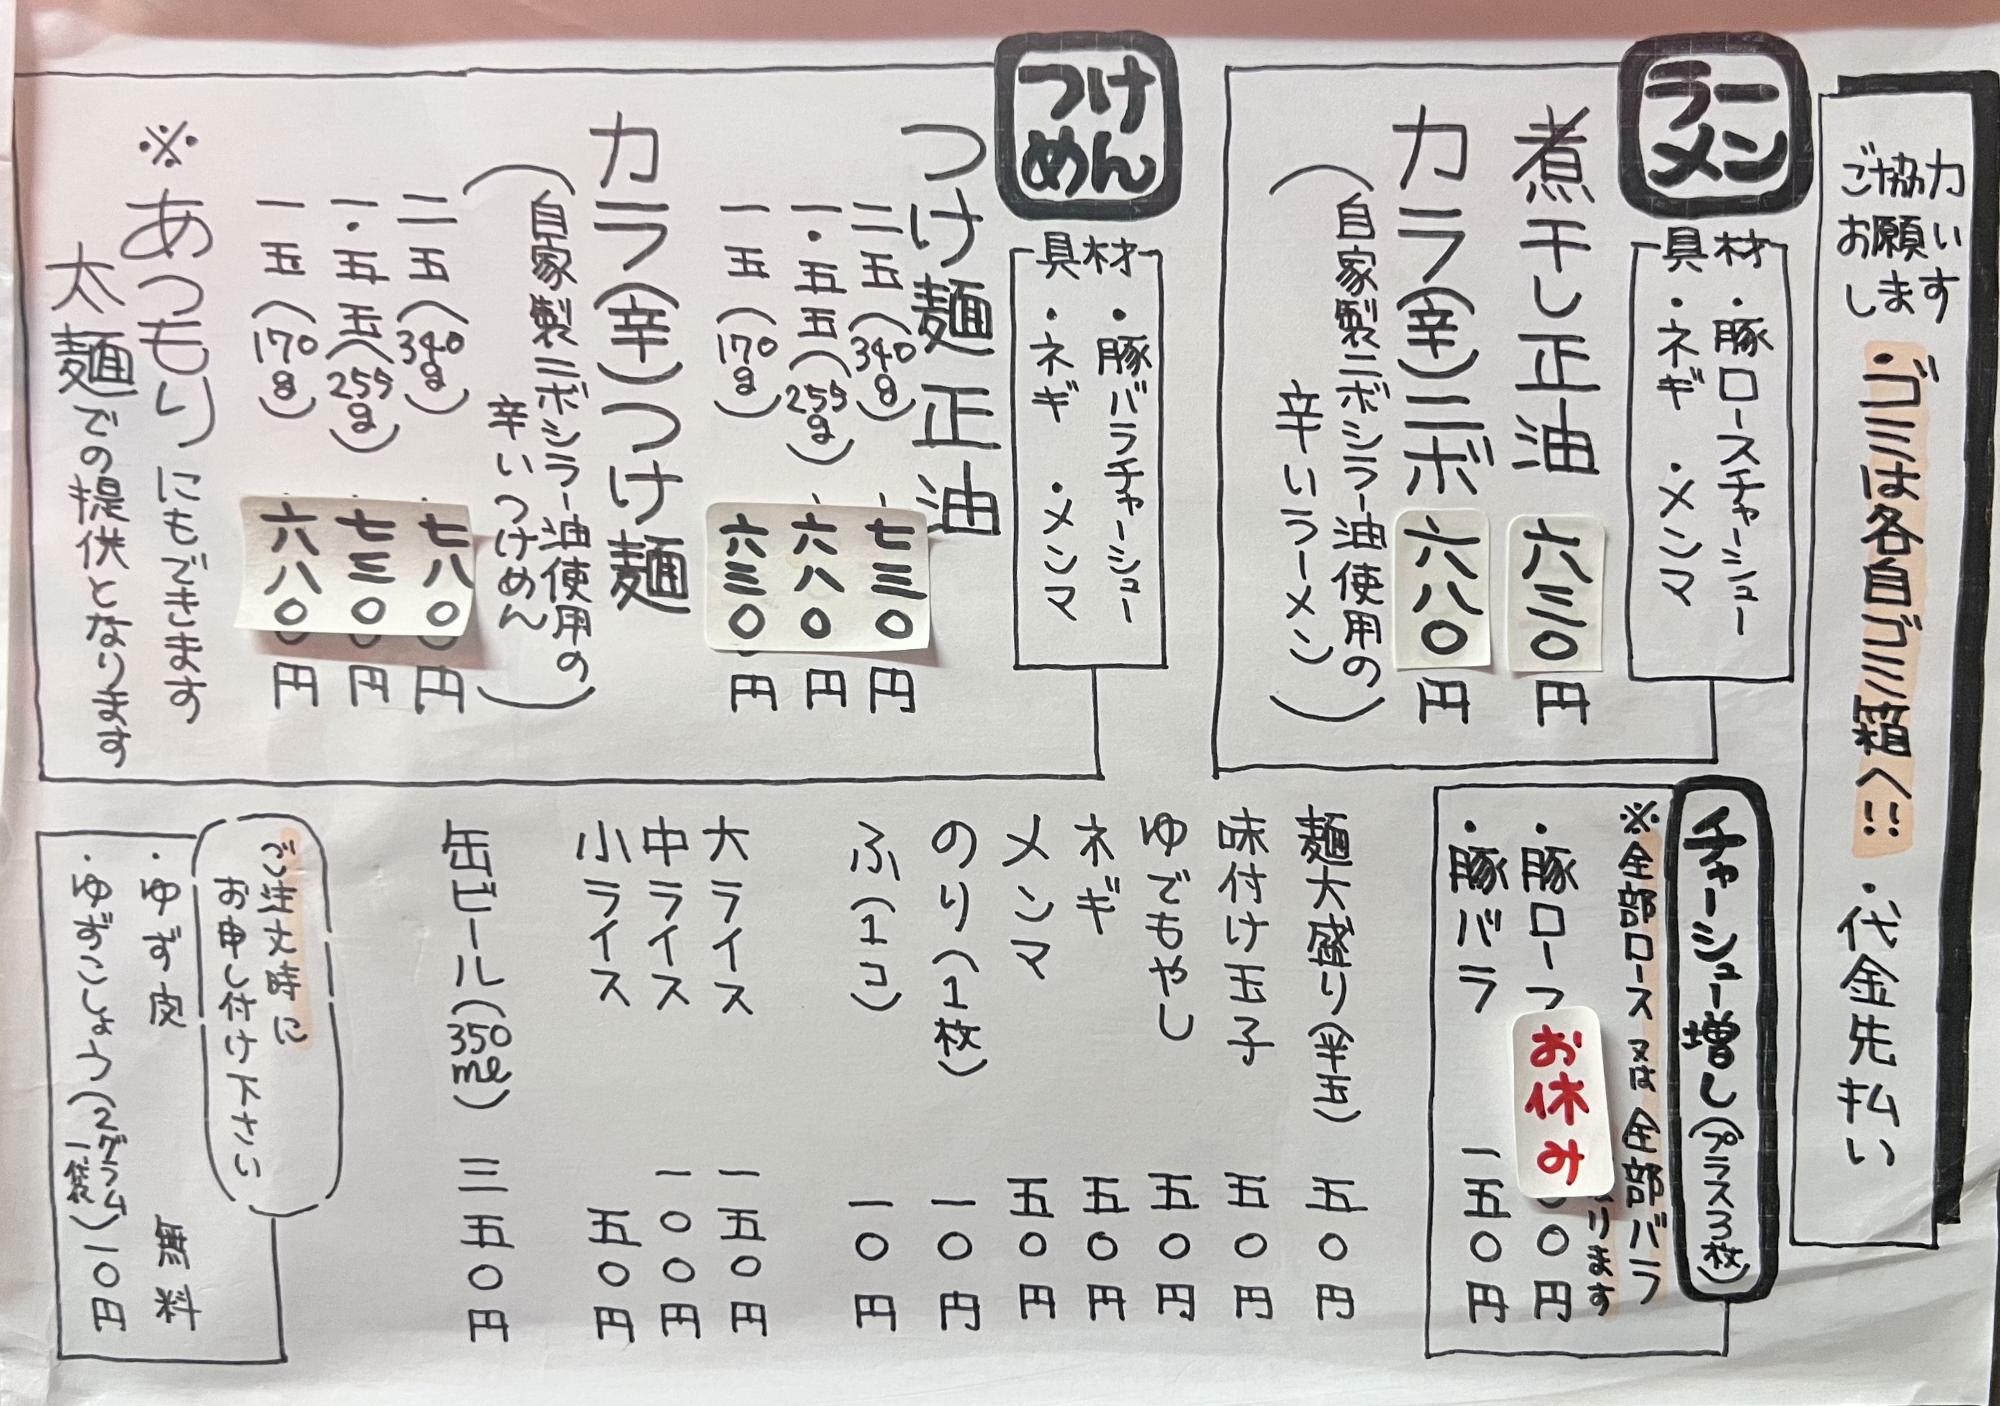 ご協力
お願い
します
・ゴミは各自ゴミ箱へ!!
・代金先払い
ラー
メン
具材
・豚ロースチャーシュー
・ネギ ・メンマ
煮干し正油 六三〇円
カラ(辛)ニボ 六八〇円
(自家製ニボシラー油使用の
辛いラーメン)
つけ
めん
具材
・豚バラチャーシュー
・ネギ ・メンマ
つけ麺正油
二玉(340g) 七三〇円
一.五玉(255g) 六八〇円
一玉(170g) 六三〇円
カラ(辛)つけ麺
(自家製ニボシラー油使用の
辛いつけめん)
二玉(340g) 七八〇円
一.五玉(255g) 七三〇円
一玉(170g) 六八〇円
※あつもりにもできます
太麺での提供となります
チャーシュー増し(プラス3枚)
※全部ロース又は全部バラ
ります
・豚ロー お休み 〇円
・豚バラ 一五〇円
麺大盛り(半玉) 五〇円
味付け玉子 五〇円
ゆでもやし 五〇円
ネギ 五〇円
メンマ 五〇円
のり(1枚) 一〇円
ふ(1コ) 一〇円
大ライス 一五〇円
中ライス 一〇〇円
小ライス 五〇円
缶ビール(350ml) 三五〇円
ご注文時に
お申し付け下さい
・ゆず皮 無料
・ゆずこしょう(2グラム一袋)一〇円